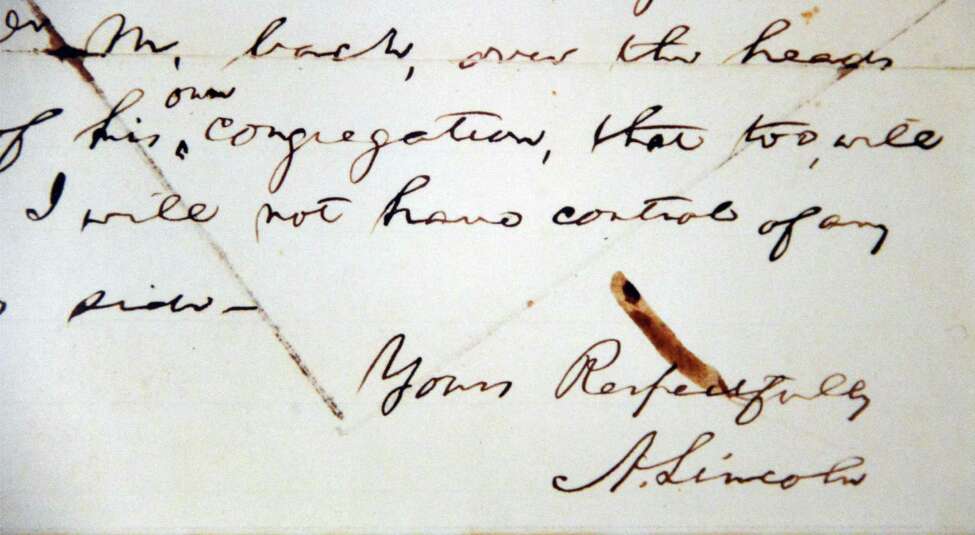 M. back, over the heads
own
of his ‸ congregation, that too, will
I will not have control of any
side—
Yours Respectfully
A. Lincoln